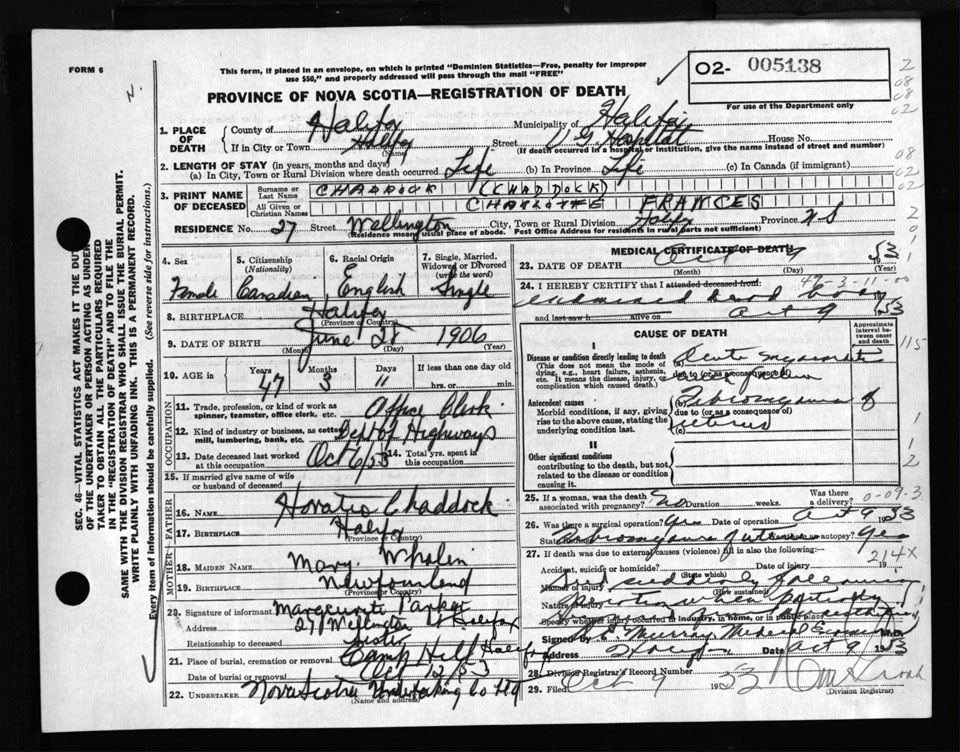 FORM 6
This form, if placed in an envelope, on which is printed "Dominion Statistics—Free, penalty for improper
use $50," and properly addressed will pass through the mail "FREE"
02- 005138
For use of the Department only
PROVINCE OF NOVA SCOTIA—REGISTRATION OF DEATH
1. PLACE OF DEATH
County of Halifax Municipality of Halifax
If in City or Town Halifax Street V G Hospital House No.
(Name)
(If death occurred in a hospital or institution, give the name instead of street and number)
2. LENGTH OF STAY (in years, months and days)
(a) In City, Town or Rural Division where death occurred Life (b) In Province Life (c) In Canada (if immigrant)
3. PRINT NAME OF DECEASED
Surname or Last Name CHADDOCK (CHADDOCK)
All Given or Christian Names CHARLOTTE FRANCES
RESIDENCE No. 27 Street Wellington City, Town or Rural Division Halifax Province N S
(Residence means usual place of abode. Post Office Address for residents in rural parts not sufficient)
4. Sex Female
5. Citizenship (Nationality) Canadian
6. Racial Origin English
7. Single, Married, Widowed or Divorced (write the word) Single
8. BIRTHPLACE Halifax
(Province or Country)
9. DATE OF BIRTH June 28 1906
(Month) (Day) (Year)
10. AGE in Years 47 Months 3 Days 11 If less than one day
hrs. or min.
OCCUPATION
11. Trade, profession, or kind of work as spinner, teamster, office clerk, etc. Office Clerk
12. Kind of industry or business, as cotton mill, lumbering, bank, etc. Dept of Highways
13. Date deceased last worked at this occupation Oct 6/53
14. Total yrs. spent in this occupation
15. If married give name of wife or husband of deceased
FATHER
16. Name Horatio Chaddock
17. BIRTHPLACE Halifax
(Province or Country)
MOTHER
18. MAIDEN NAME Mary Whalen
19. BIRTHPLACE Newfoundland
(Province or Country)
20. Signature of informant Marguerite Parker
Address 27 Wellington St Halifax
Relationship to deceased Sister
21. Place of burial, cremation or removal Camp Hill Halifax
Date of burial or removal Oct 12/53
22. UNDERTAKER Nova Scotia Undertaking Co Ltd
(Name and address)
MEDICAL CERTIFICATE OF DEATH
23. DATE OF DEATH Oct 9 53
(Month) (Day) (Year)
24. I HEREBY CERTIFY that I attended deceased from: 47-3-11-00
examined dead body
and last saw h alive on Oct 9 53
CAUSE OF DEATH
Approximate interval between onset and death
I
Disease or condition directly leading to death
(This does not mean the mode of dying, e.g., heart failure, asthenia, etc. It means the disease, injury, or complication which caused death.)
(a) Acute
due to (or as a consequence of)
Antecedent causes
Morbid conditions, if any, giving rise to the above cause, stating the underlying condition last.
(b) Fibromyoma of
due to (or as a consequence of)
uterus
(c)
II
Other significant conditions
contributing to the death, but not related to the disease or condition causing it
115
25. If a woman, was the death associated with pregnancy? No Duration weeks. Was there a delivery?
0-09-3
26. Was there a surgical operation? Yes Date of operation Oct 9 1953
State findings Fibromyoma of uterus autopsy? Yes
27. If death was due to external causes (violence) fill in also the following:
214X
Accident, suicide or homicide? Date of injury 19
(State which)
Manner of injury Died suddenly following
(How sustained)
Nature of injury operation when partially
Specify whether injury occurred in industry, in home, or in public place
Signed by Murray Medical Ex M.D.
Address Halifax Date Oct 9 1953
28. Division Registrar's Record Number
29. Filed Oct 9 1953
(Division Registrar)
SEC. 46—VITAL STATISTICS ACT MAKES IT THE DUTY
OF THE UNDERTAKER OR PERSON ACTING AS UNDER-
TAKER TO OBTAIN ALL THE PARTICULARS REQUIRED
IN THE "REGISTRATION OF DEATH" AND TO FILE THE
SAME WITH THE DIVISION REGISTRAR WHO SHALL ISSUE THE BURIAL PERMIT.
WRITE PLAINLY WITH UNFADING INK. THIS IS A PERMANENT RECORD.
Every item of information should be carefully supplied. (See reverse side for instructions.)